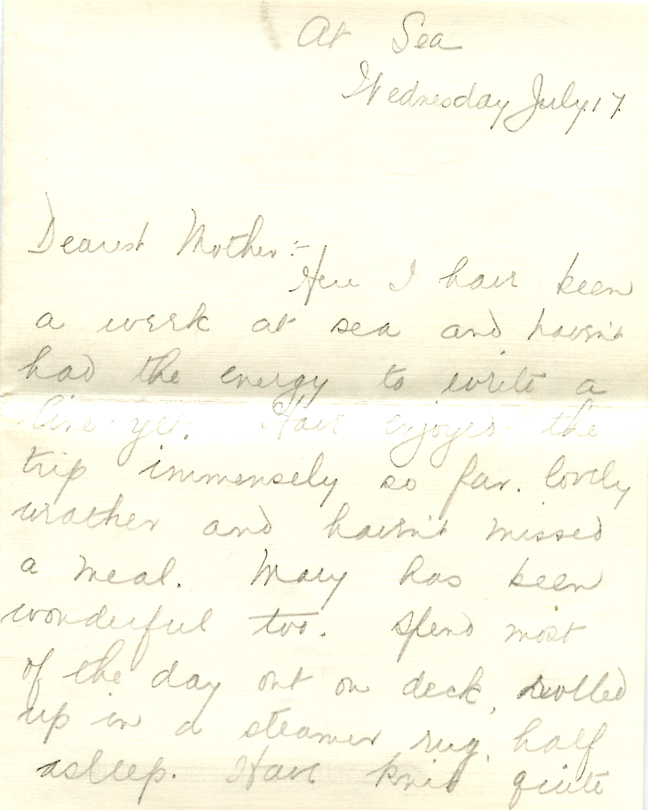 At Sea
Wednesday July 17
Dearest Mother:-
Here I have been
a week at sea and haven't
had the energy to write a
line yet. Have enjoyed the
trip immensely so far. lovely
weather and haven't missed
a meal. Mary has been
wonderful too. Spend most
of the day out on deck, rolled
up in a steamer rug, half
asleep. Have knit quite